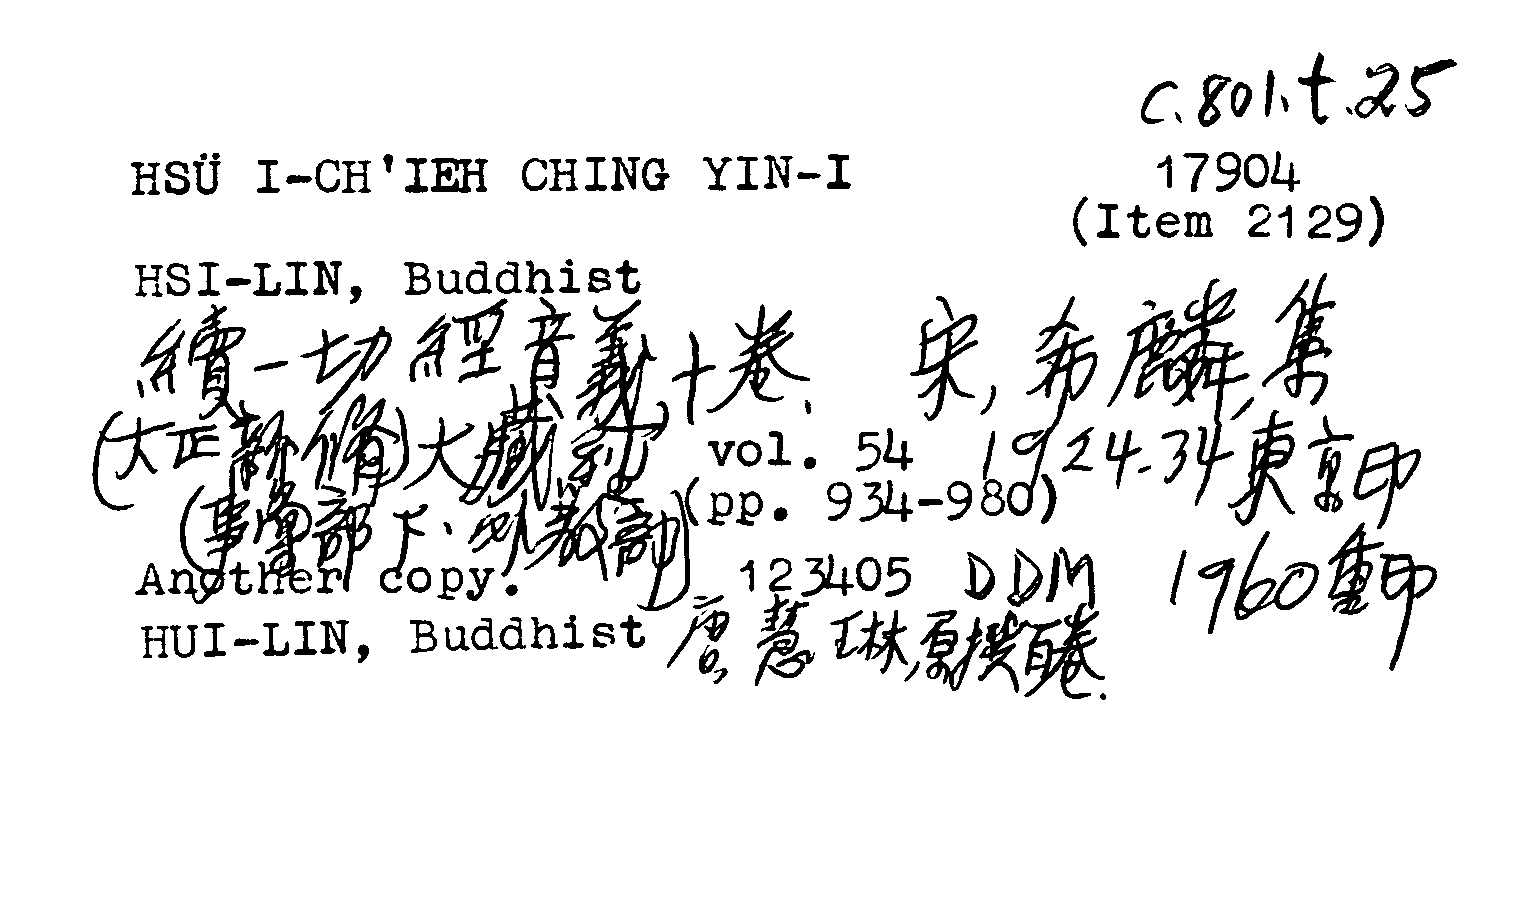 C.801.t.25
HSÜ I-CH'IEH CHING YIN-I 17904
(Item 2129)
HSI-LIN, Buddhist
續一切經音義,十卷. 宋,希麟,集
(大正新脩)大藏經 vol. 54 1924-34,東京印
(事彙部下·外教部) (pp. 934-980)
Another copy. 123405 DDM 1960重印
HUI-LIN, Buddhist 唐,慧琳,原撰百卷.